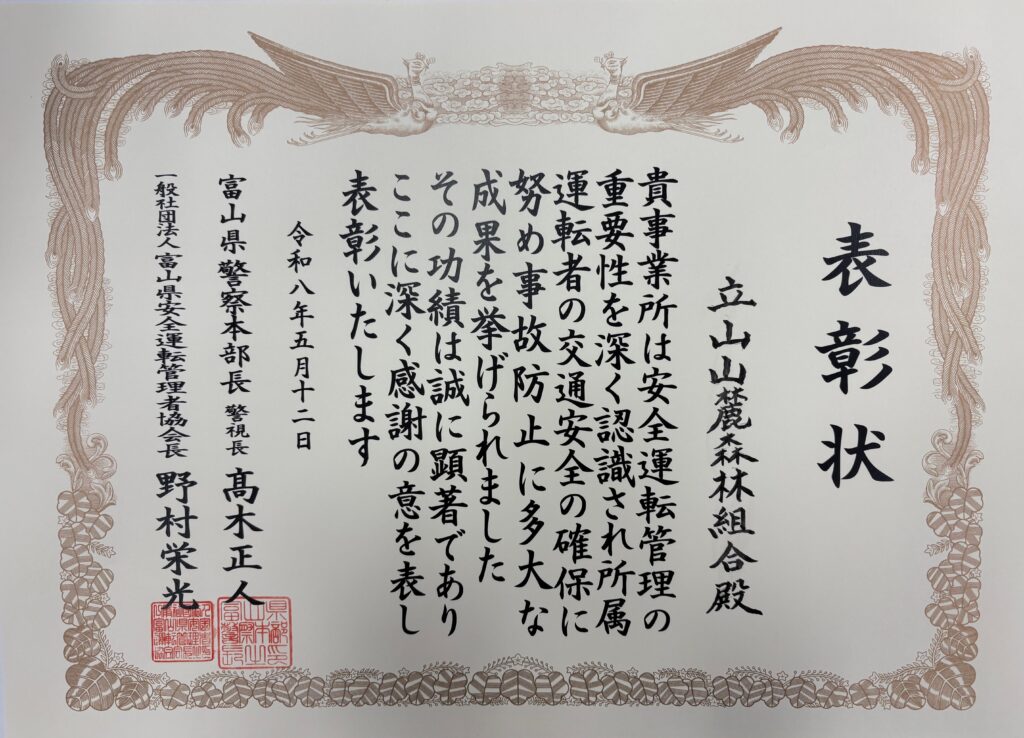 表彰状
立山山麓森林組合殿
貴事業所は安全運転管理の
重要性を深く認識され所属
運転者の交通安全の確保に
努め事故防止に多大な
成果を挙げられました
その功績は誠に顕著であり
ここに深く感謝の意を表し
表彰いたします
令和八年五月十二日
富山県警察本部長 警視長 髙木正人
一般社団法人富山県安全運転管理者協会長 野村栄光